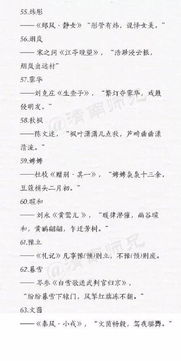 55.炜彤
——《邶风·静女》，"彤管有炜，说怿女美。"
56.
——宋之问《江亭晚望》，"浩渺浸云根，
烟岚出远村"
57.
——刘克庄《生查子》，"繁灯夺霁华，戏鼓
侵明发。"
58.荻枫
——陈文述，"枫叶潇潇
"
59.娉婷
——杜牧《赠别·其一》，"娉娉袅袅十三余，
豆蔻梢头二月初。"
60.暖和
——刘永《黄莺儿》，"暖律潜催，幽谷暄
和，黄鹂翩翩，乍迁芳树。"
61.豫立
——《礼记》凡事豫(预)则立，不豫(预)则废。
62.暮雪
——岑参《白雪歌送武判官归京》，
"纷纷暮雪下辕门，风掣红旗冻不翻。"
63.文茵
——《秦风·小戎》，"文茵畅毂，驾我骐馵。"